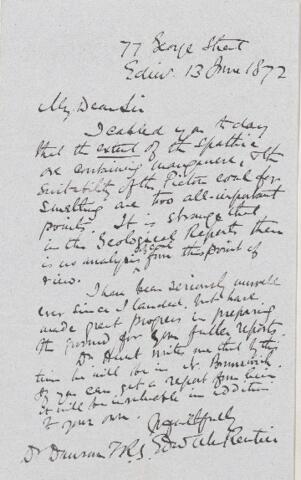 77 George Street
Edinr. 13 June 1872
My Dear Sir
I cabled you to day
that the extent of the Spathic
ore containing manganese, & the
suitability of the Pictou coal for
smelting are two all-important
points. It is strange that
in the Geological Reports there
is no analysis from this point of
view.
I have been seriously unwell
ever since I landed, but have
made great progress in preparing
the ground for your fuller reports.
Dr Hunt writes me that by this
time he will be in N. Brunswick.
If you can get a report from him
it will be invaluable in addition
to your own.
Yrs faithfully
Dr Dawson F.R.S.